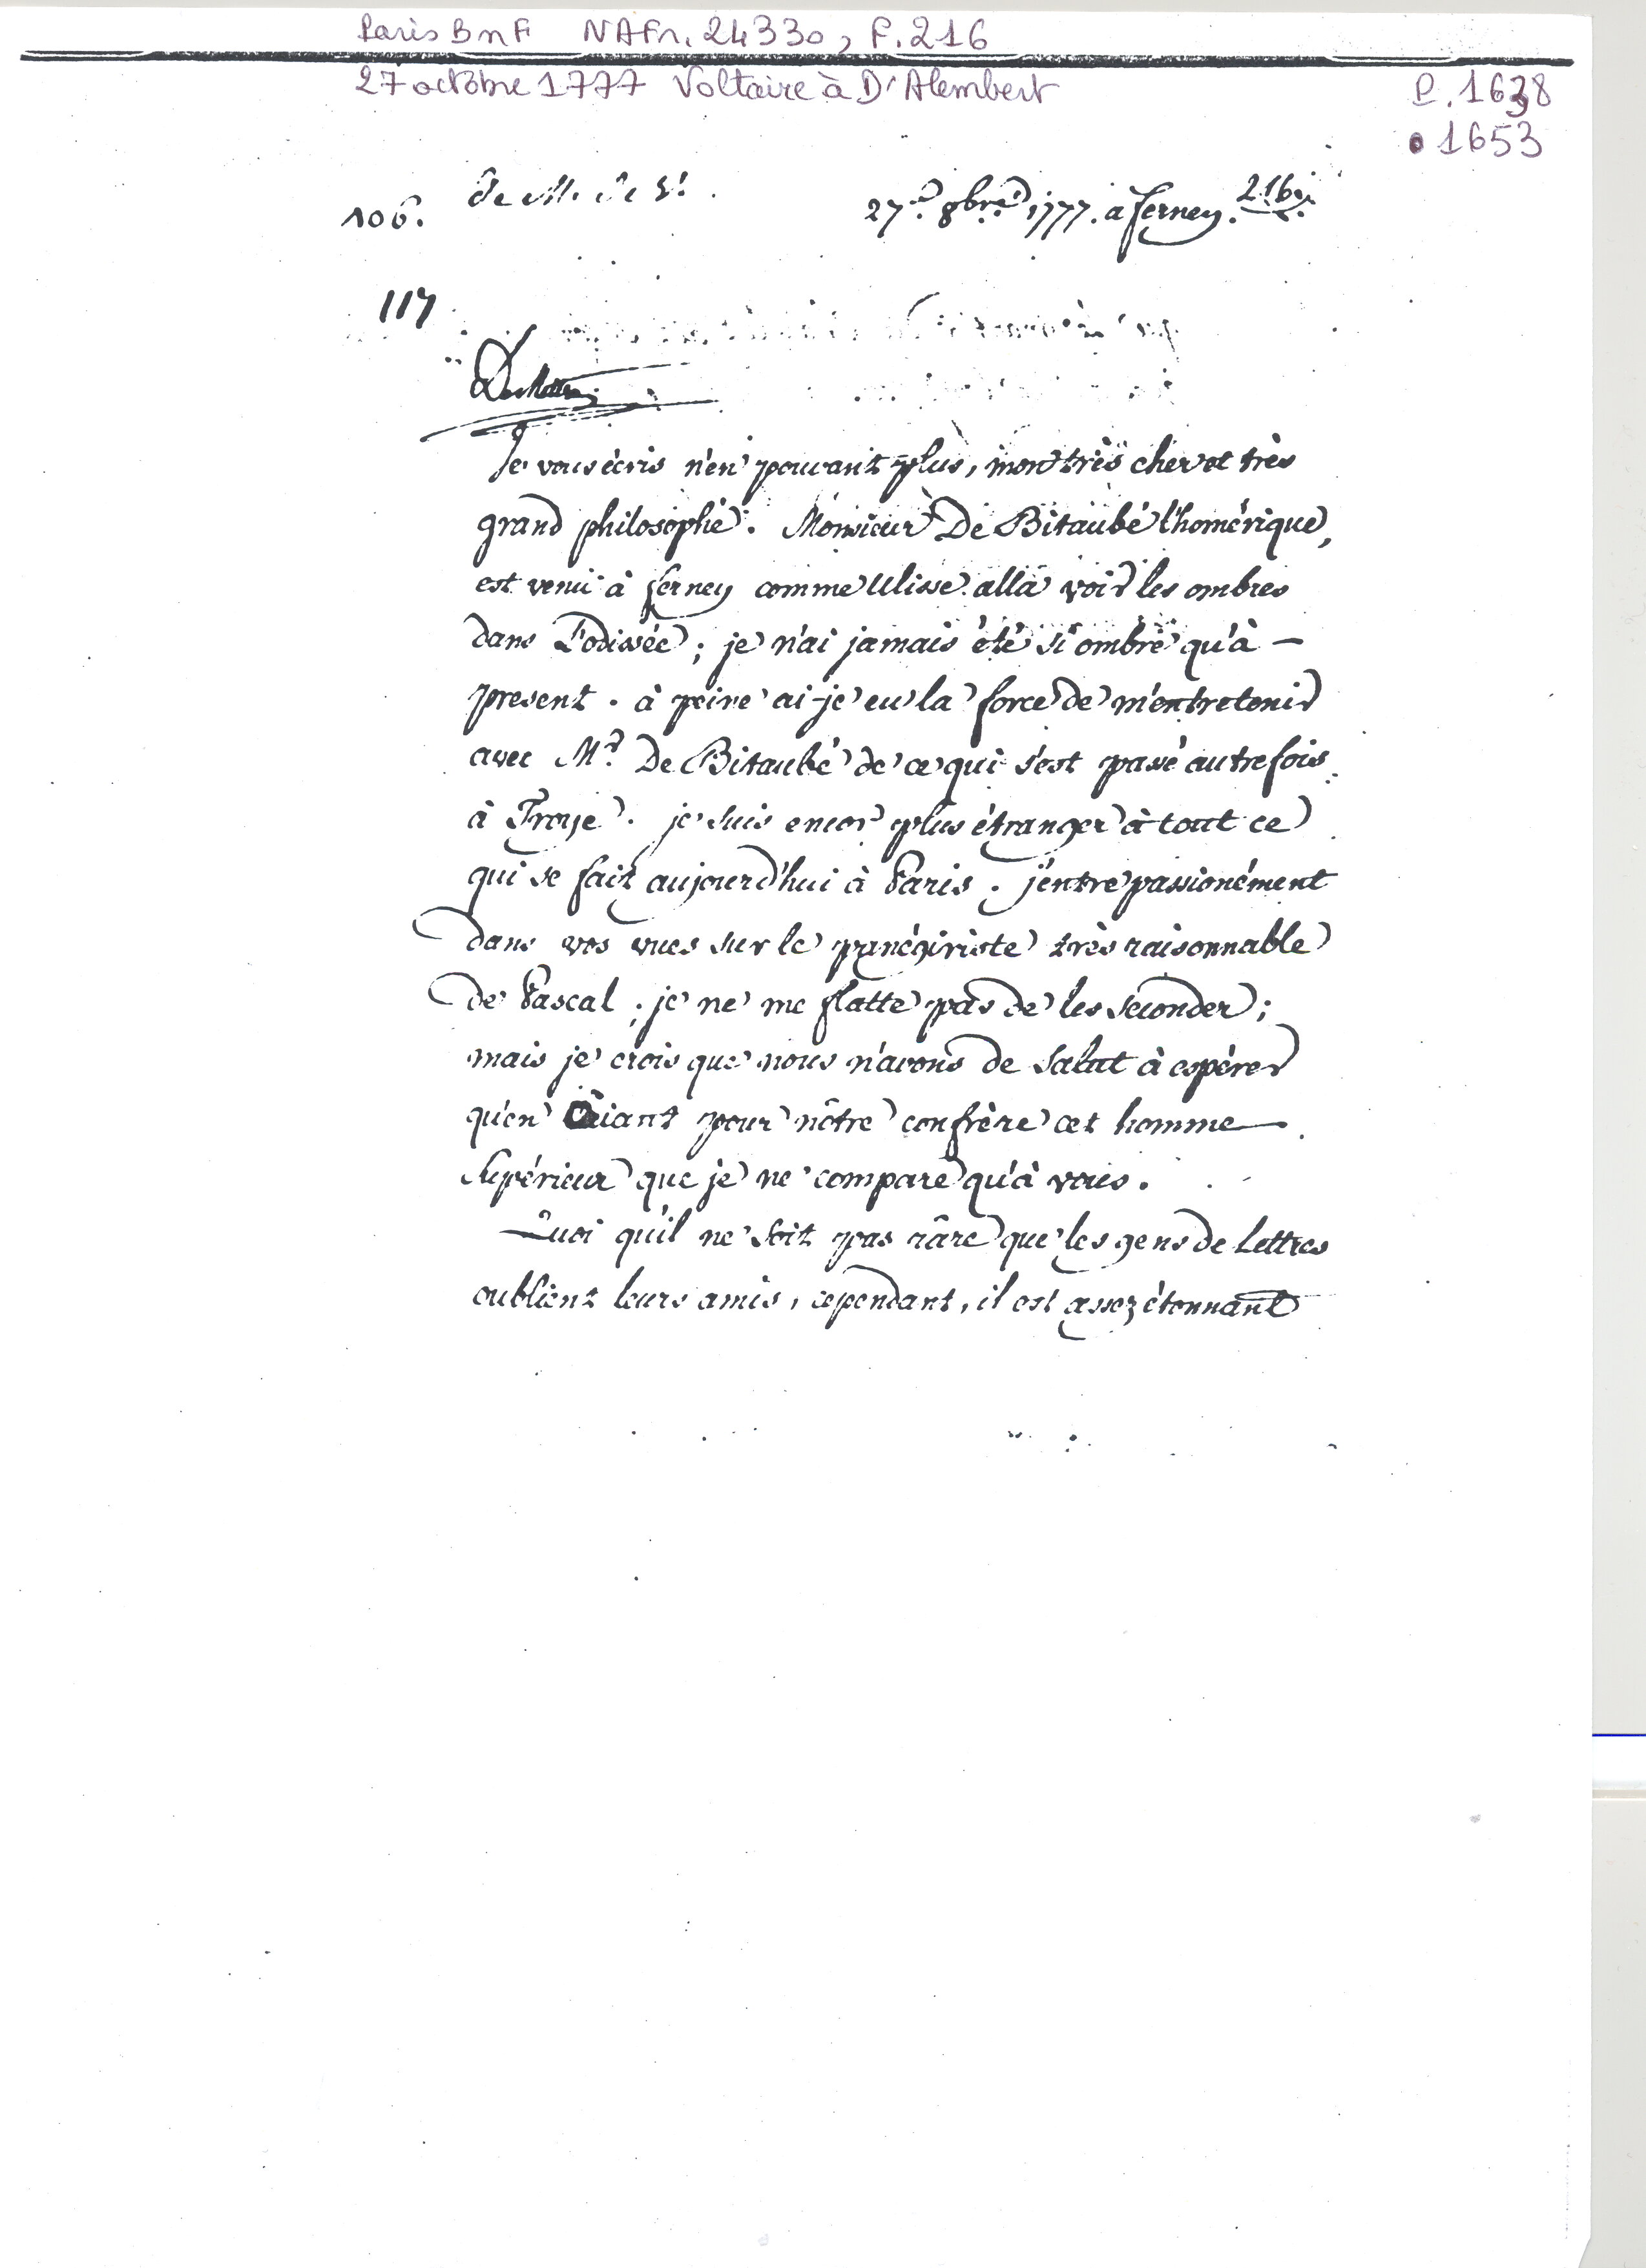 Paris BnF NAFr. 24330, F. 216
27 octobre 1777 Voltaire à D'Alembert
P. 1638
1653
106. de M. de V.
27e. 8bre. 1777. à ferney. 216.
117
Je vous écris n'en pouvant plus, mon très cher et très
grand philosophe. Monsieur De Bitaubé l'homérique,
est venu à ferney comme Ulisse alla voir les ombres
dans l'odissée; je n'ai jamais été si ombre qu'à –
present. à peine ai-je eu la force de m'entretenir
avec Mr. De Bitaubé de ce qui s'est passé autrefois
à Troye. je suis encor plus étranger à tout ce
qui se fait aujourd'hui à Paris. j'entre passionément
dans vos vues sur le panégiriste très raisonnable
de Pascal; je ne me flatte pas de les seconder;
mais je crois que nous n'avons de salut à espérer
qu'en aiant pour nôtre confrère cet homme
supérieur que je ne compare qu'à vous.
Quoi qu'il ne soit pas râre que les gens de Lettres
oublient leurs amis, cependant, il est assez étonnant